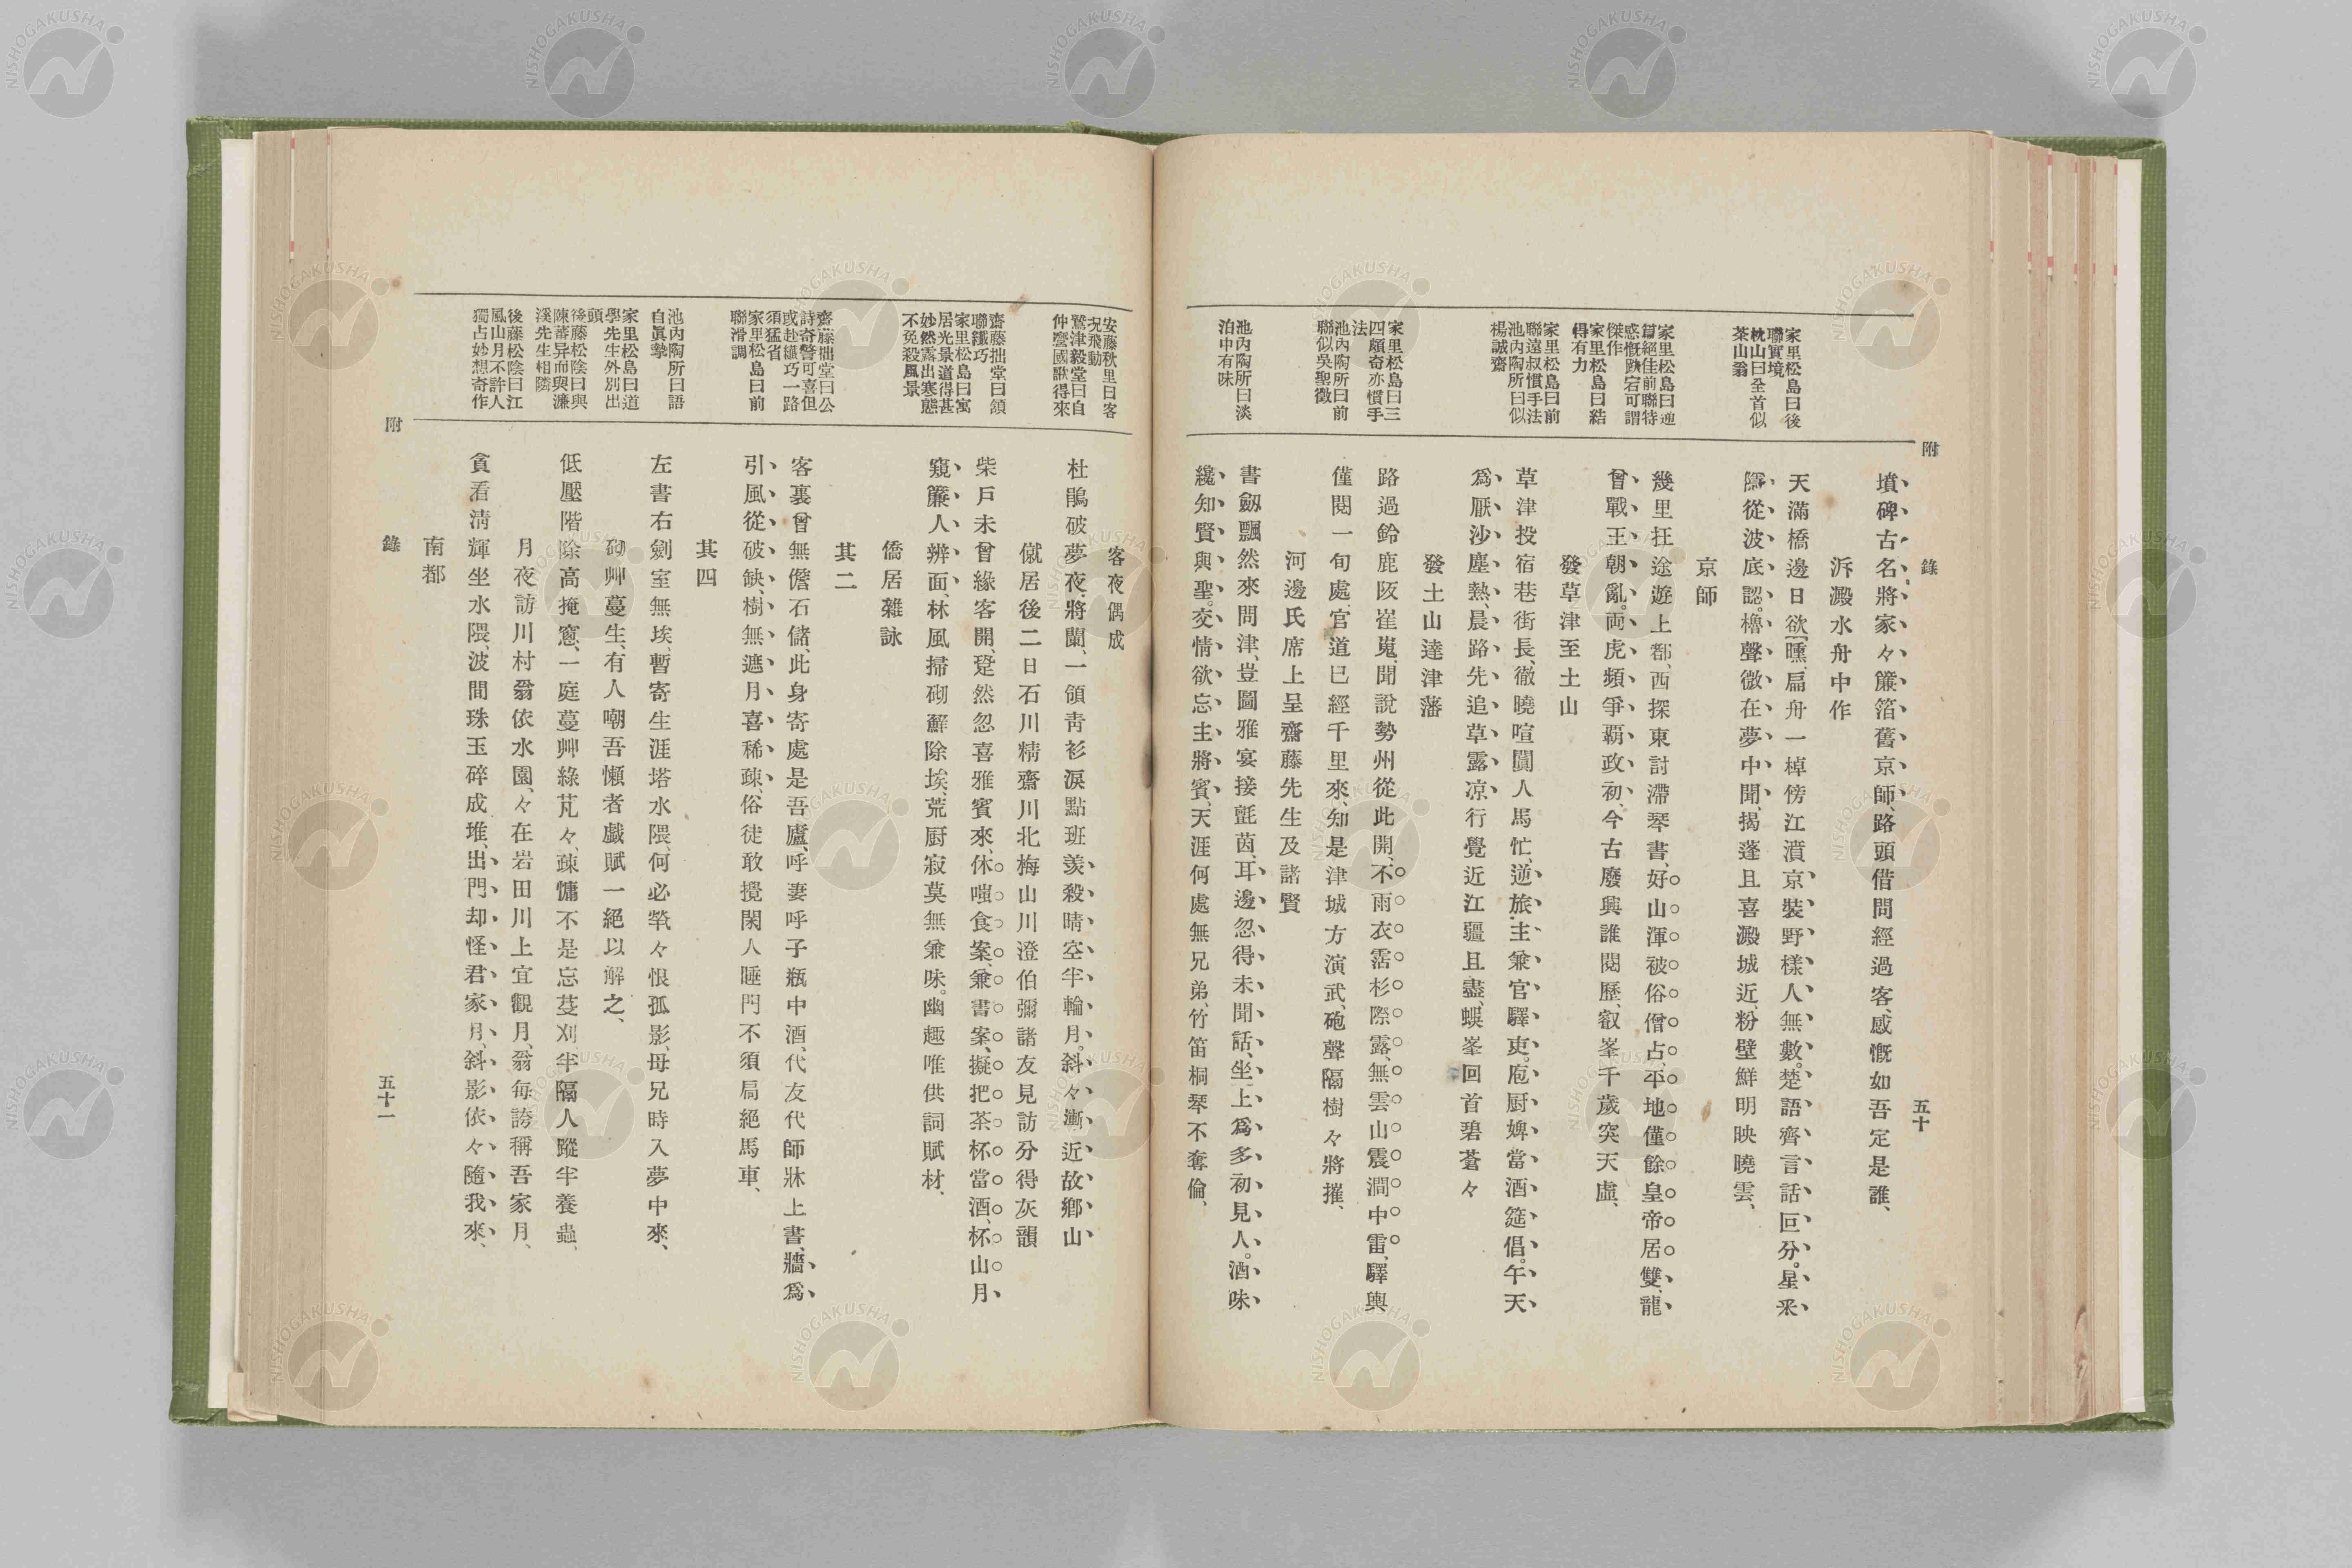 附　錄　五十
墳碑古名、將家々簾箔舊京師、路頭借問經過客、感慨如吾定是誰、
泝澱水舟中作
天滿橋邊日欲曛、扁舟一棹傍江濆、京裝野樣人無數。楚語齊言話叵分。星釆
隱從波底認。櫓聲微在夢中聞、揭蓬且喜澱城近、粉壁鮮明映曉雲、
京師
幾里狂途遊上都、西探東討滯琴書、好山渾被俗僧占、平地僅餘皇帝居、雙龍
曾戰王朝亂。両虎頻爭覇政初、今古廢興誰閱歷、叡峯千歲突天虛、
發草津至土山
草津投宿巷街長、徹曉喧闐人馬忙、逆旅主兼官驛吏。庖厨婢當酒筵倡。午天
爲厭沙塵熱、晨路先追草露凉、行覺近江疆且盡、蜈峯回首碧蒼々
發土山達津藩
路過鈴鹿阪崔嵬、聞說勢州從此開、不雨衣霑杉際露、無雲山震澗中雷、驛輿
僅閱一旬處、官道已經千里來、知是津城方演武、砲聲隔樹々將摧、
河邊氏席上呈齋藤先生及諸賢
書劔飄然來問津、豈圖雅宴接氈茵、耳邊忽得未聞話、坐上爲多初見人。酒味
纔知賢與聖。交情欲忘主將賓、天涯何處無兄弟、竹笛桐琴不奪倫、
家里松島曰後
聯實境
枕山曰全首似
茶山翁
家里松島曰連
篇經佳前聯特
感慨跌宕可謂
傑作
家里松島曰結
得有力
家里松島曰前
聯遠叔慣手法
池內陶所曰似
楊誠齋
家里松島曰三
四頗奇亦慣手
法
池內陶所曰前
聯似吳聖徵
池內陶所曰淡
泊中有味
客夜偶成
杜鵑破夢夜將闌、一領靑衫淚點班羨殺晴空半輪月。斜々漸近故鄕山
僦居後二日石川精齋川北梅山川澄伯彌諸友見訪分得灰韻
柴戶未曾緣客開、跫然忽喜雅賓來、休嗤食案兼書案、擬把茶杯當酒杯、山月
窺簾人辨面、林風掃砌蘚除埃、荒厨寂莫無兼味。幽趣唯供詞賦材、
僑居雜詠
其二
客裏曾無儋石儲、此身寄處是吾廬、呼妻呼子瓶中酒、代友代師牀上書、牆爲
引風從破缺、樹無遮月喜稀疎、俗徒敢攪閑人睡門不須局絕馬車、
其四
左書右劍室無埃、暫寄生涯塔水隈、何必煢々恨孤影、母兄時入夢中來、
砌艸蔓生、有人嘲吾懶者戲賦一絕以解之、
低壓階除高掩窻、一庭蔓艸綠芃々、疎慵不是忘芟刈、半隔人蹤半養蟲、
月夜訪川村翁依水園、々在岩田川上宜觀月、翁每誇稱吾家月、
貪看淸輝坐水隈、波間珠玉碎成堆、出門却怪君家月、斜影依々隨我來、
南都
安藤秋里曰客
況飛動
鷲津毅堂曰自
仲鸞國讌得來
齋藤拙堂曰頷
聯纖巧
家里松島曰寓
居光景道得甚
妙然露出寒態
不免殺風景
齋藤拙堂曰公
詩奇警可喜但
或赴纖巧一路
須猛省
家里松島曰前
聯滑調
池內陶所曰語
自眞摯
家里松島曰道
學先生外別出
頭
後藤松陰曰與
陳蕃异而與濂
溪先生相隣
後藤松陰曰江
風山月不許人
獨占妙想奇作
附　錄　五十一